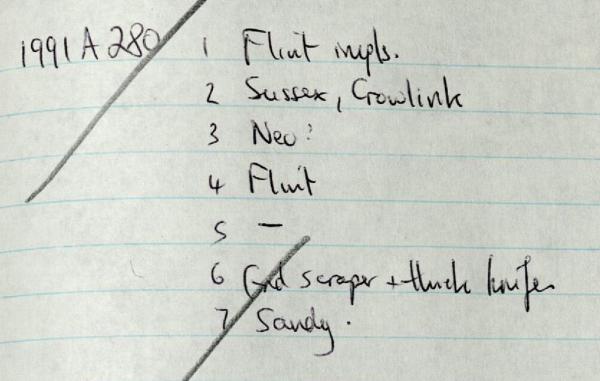 1991 A 280 1 Flint impls.
2 Sussex, Crowlink
3 Neo?
4 Flint
5 —
6 End scraper + thick knife
7 Sandy.